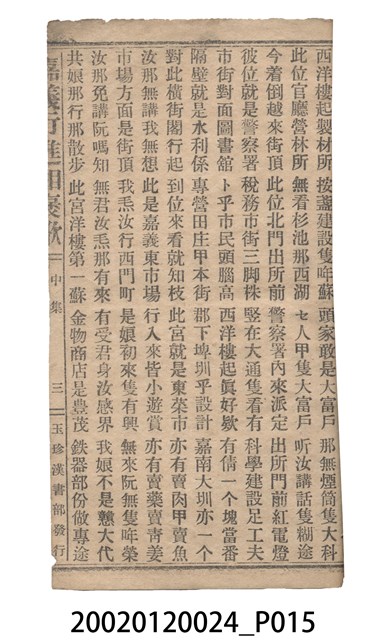 西洋樓起製材所 按盞建設隻呍蘇 頭家敢是大富戶 那無煙筒隻大科
此位官廳營林所 無看杉池那西湖 七人甲隻大富戶 听汝講話隻糊途
今着倒越來街頂 此位北門出所前 警察署內來派定 出所門前紅電燈
彼位就是警察署 稅務市街三脚株 竪在大通隻看有 科學建設足工夫
市街對面圖書舘 卜乎市民頭腦高 西洋樓起眞好欵 有倩一个塊當番
隔壁就是水利係 專營田庄甲本街 郡下埤圳乎設計 嘉南大圳亦一个
對此橫街閣行起 到位來看就知枝 此宮就是東菜市 亦有賣肉甲賣魚
汝那無講我無想 此是嘉義東市場 行入來皆小遊賞 亦有賣藥賣靑姜
市場方面是街頂 我炁汝行西門町 是娘初來隻有興 無來阮無隻呍榮
汝那免講阮嗎知 無君汝炁那有來 有受君身汝感界 我娘不是戇大代
共娘那行那散步 此宮洋樓第一蘇 金物商店是豊茂 鉄器部份做專途
嘉義行進相褒歌 中集 三 玉珍漢書部發行
20020120024_P015